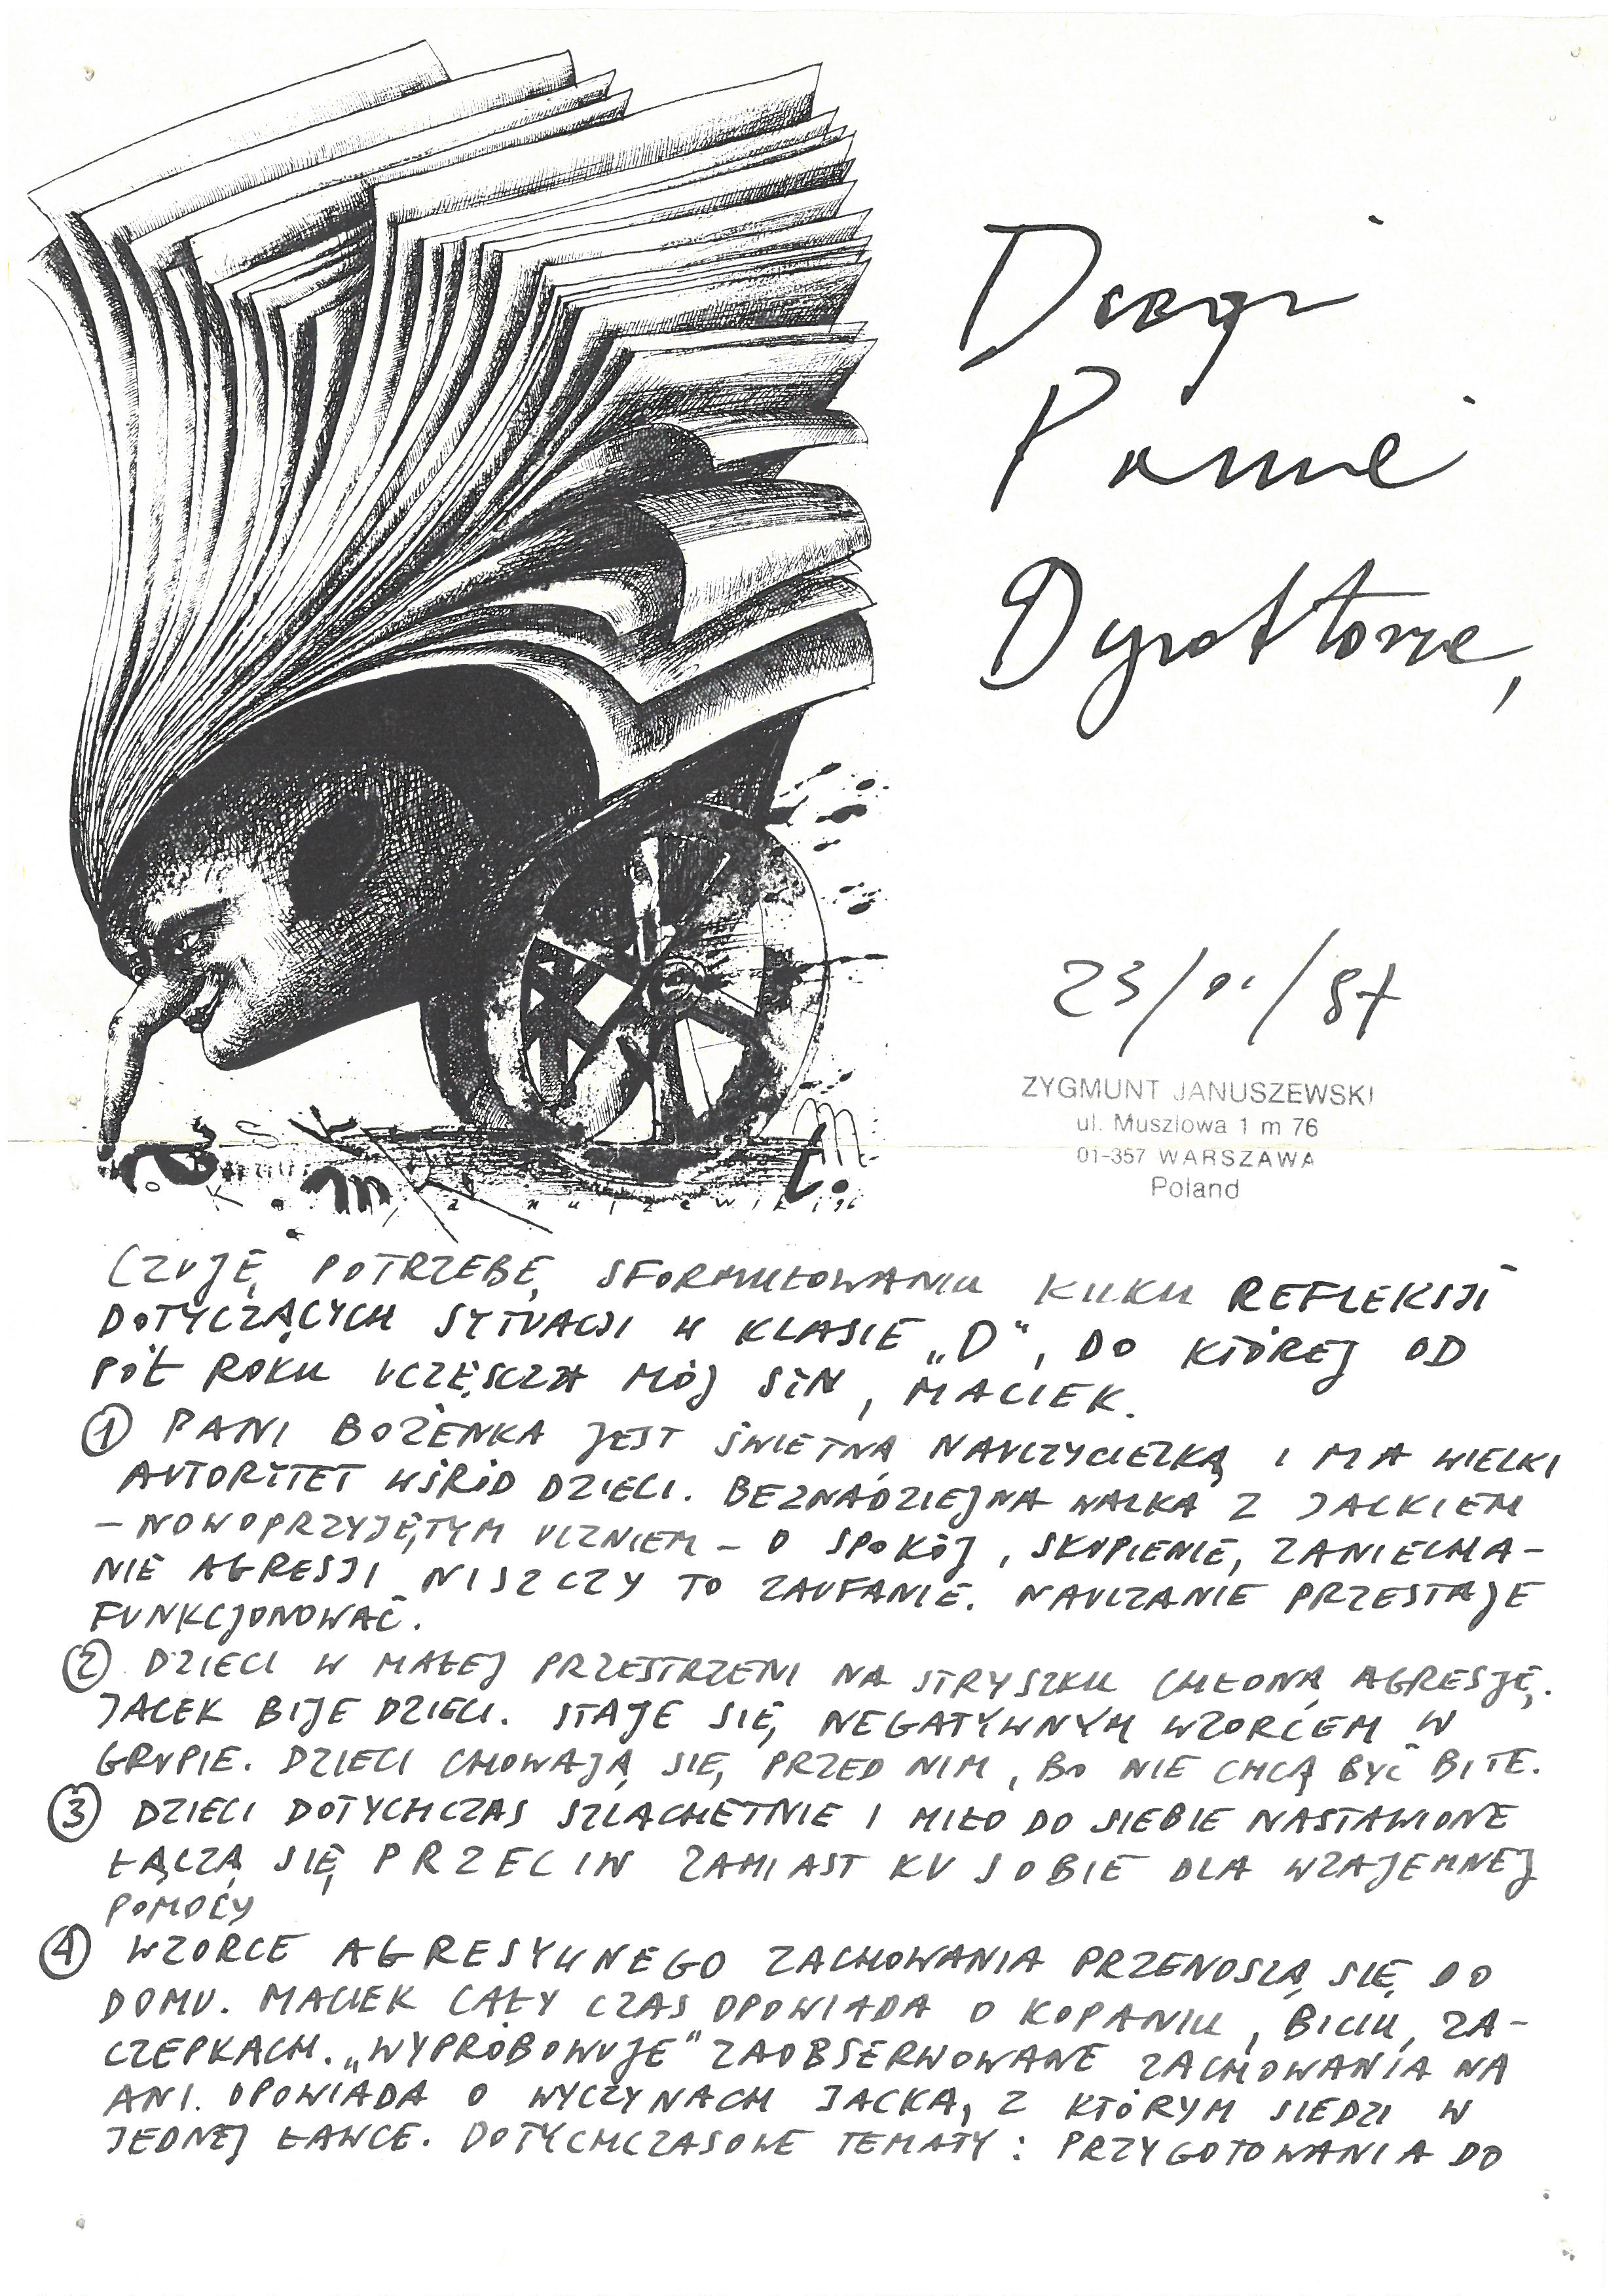 Drogi
Panie
Dyrektorze,
23/01/97
ZYGMUNT JANUSZEWSKI
ul. Muszlowa 1 m 76
01-357 WARSZAWA
Poland
CZUJĘ POTRZEBĘ SFORMUŁOWANIA KILKU REFLEKSJI
DOTYCZĄCYCH SYTUACJI W KLASIE „D", DO KTÓREJ OD
PÓŁ ROKU UCZĘSZCZA MÓJ SYN, MACIEK.
① PANI BOŻENKA JEST ŚWIETNĄ NAUCZYCIELKĄ I MA WIELKI
AUTORYTET WŚRÓD DZIECI. BEZNADZIEJNA WALKA Z JACKIEM
– NOWOPRZYJĘTYM UCZNIEM – O SPOKÓJ, SKUPIENIE, ZANIECHA–
NIE AGRESJI NISZCZY TO ZAUFANIE. NAUCZANIE PRZESTAJE
FUNKCJONOWAĆ.
② DZIECI W MAŁEJ PRZESTRZENI NA STRYSZKU CHŁONĄ AGRESJĘ.
JACEK BIJE DZIECI. STAJE SIĘ NEGATYWNYM WZORCEM W
GRUPIE. DZIECI CHOWAJĄ SIĘ PRZED NIM, BO NIE CHCĄ BYĆ BITE.
③ DZIECI DOTYCHCZAS SZLACHETNIE I MIŁO DO SIEBIE NASTAWIONE
ŁĄCZĄ SIĘ PRZECIW ZAMIAST KU SOBIE DLA WZAJEMNEJ
POMOCY
④ WZORCE AGRESYWNEGO ZACHOWANIA PRZENOSZĄ SIĘ DO
DOMU. MACIEK CAŁY CZAS OPOWIADA O KOPANIU, BICIU, ZA–
CZEPKACH. „WYPRÓBOWUJE" ZAOBSERWOWANE ZACHOWANIA NA
ANI. OPOWIADA O WYCZYNACH JACKA, Z KTÓRYM SIEDZI W
JEDNEJ ŁAWCE. DOTYCHCZASOWE TEMATY: PRZYGOTOWANIA DO